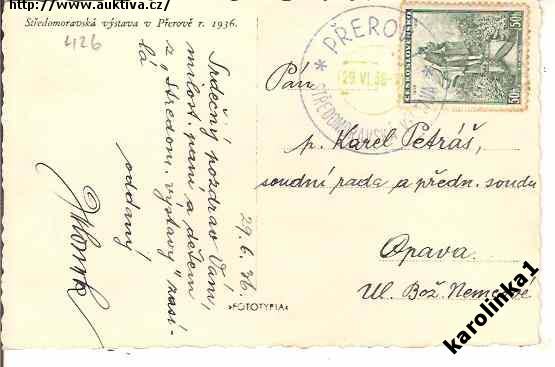 http://www.auktiva.cz/
Středomoravská výstava v Přerově r. 1936.
426
29.6.36.
Srdečný pozdrav Vám,
milost. paní a dětem
z "Středom. výstavy" zasí-
lá
oddaný
»FOTOTYPIA«
PŘEROV
29 VI 36
STŘEDOMORAVSKÁ VÝSTAVA
ČESKOSLOVENSKO
50h
50h
Pán
p. Karel Petráš,
soudní rada a předn. soudu
Opava.
Ul. Bož. Nemcové
karolinka1